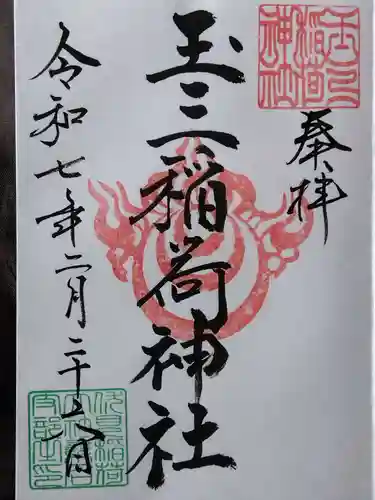 奉拝
玉三稲荷神社
令和七年二月二十六日